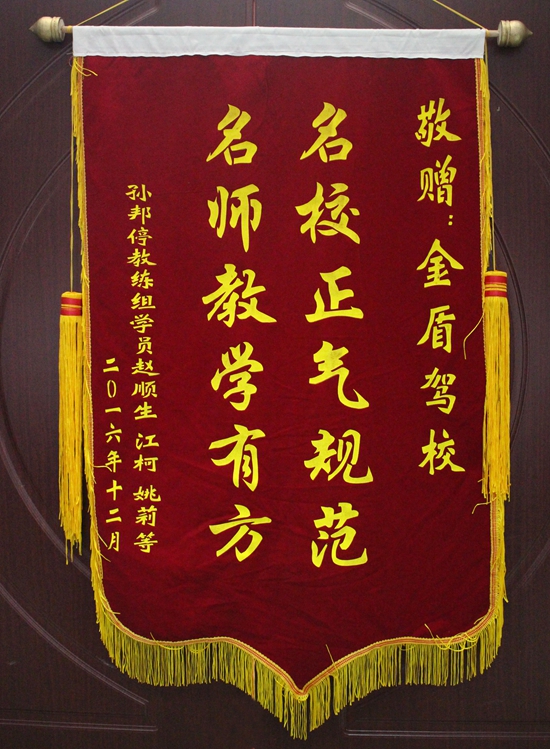 敬赠：金盾驾校
名校正气规范
名师教学有方
孙邦停教练组学员赵顺生 江柯 姚莉等
二〇一六年十二月